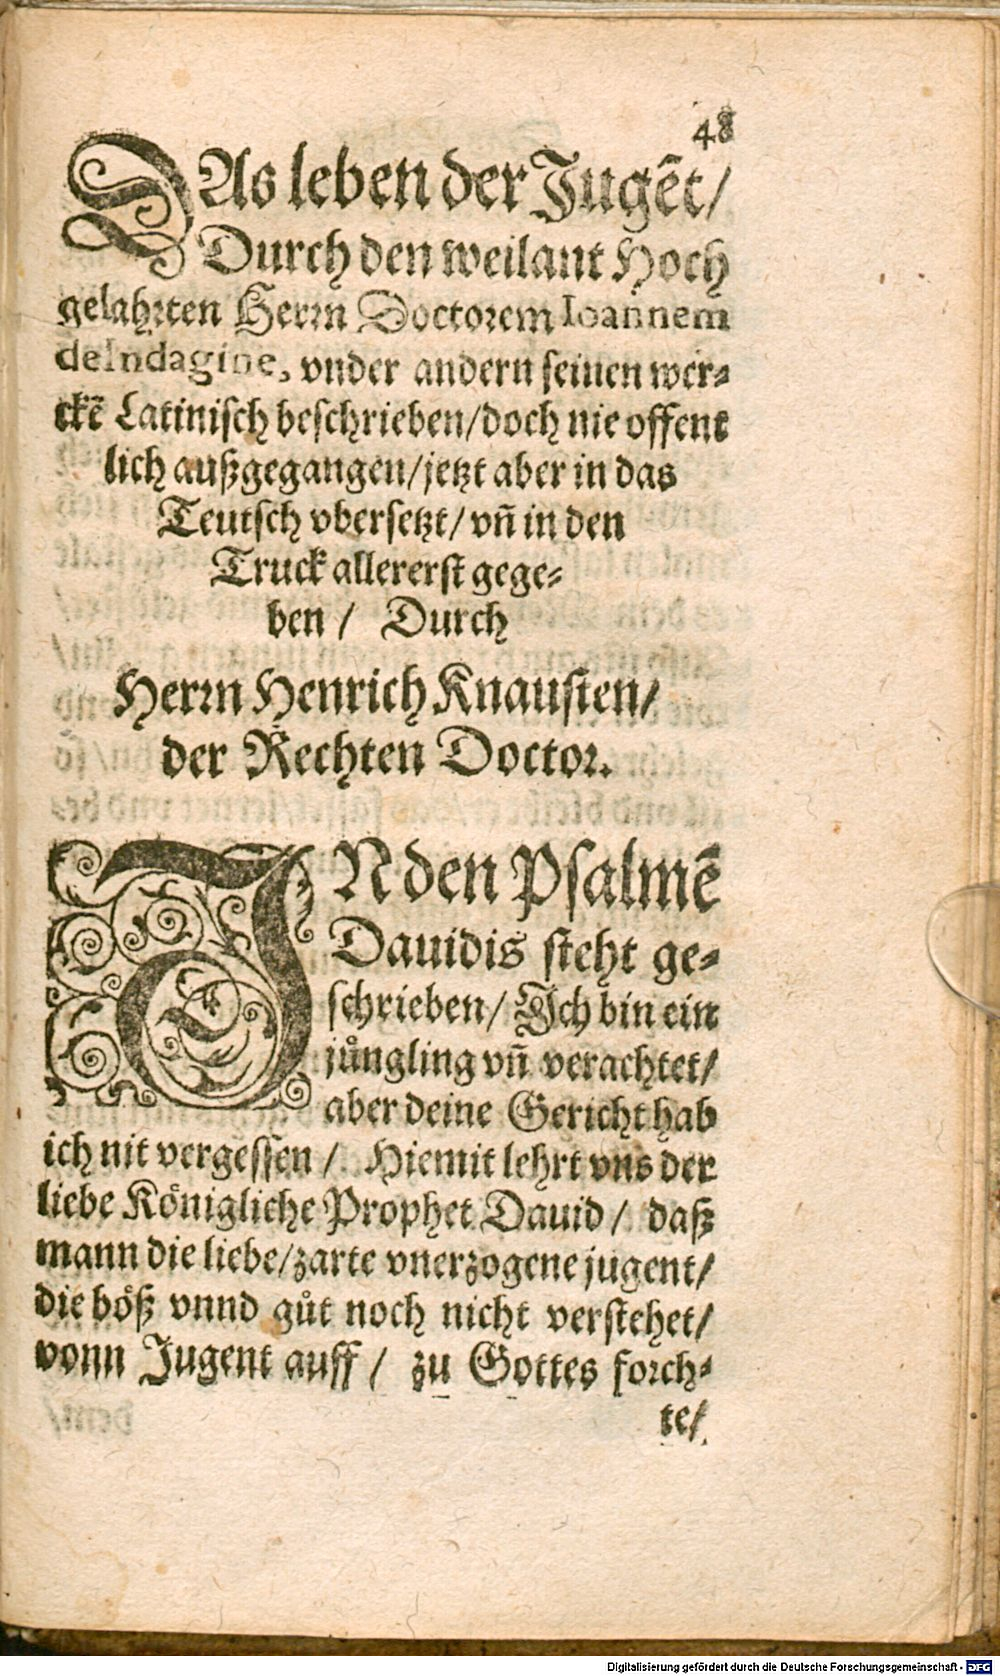 48
DAs leben der Jugēt/
Durch den weilant Hoch
gelahrten Herrn Doctorem Ioannem
de Indagine, vnder andern seinen wer-
ckē Latinisch beschrieben/doch nie offent
lich außgegangen/jetzt aber in das
Teutsch vbersetzt/ vñ in den
Truck allererst gege-
ben / Durch
Herrn Henrich Knausten/
der Rechten Doctor.
IN den Psalmē
Dauidis steht ge-
schrieben/ Ich bin ein
jůngling vñ verachtet/
aber deine Gericht hab
ich nit vergessen / Hiemit lehrt vns der
liebe Königliche Prophet Dauid / daß
mann die liebe/zarte vnerzogene jugent/
die böß vnnd gůt noch nicht verstehet/
vonn Jugent auff / zu Gottes forch-
te/
Digitalisierung gefördert durch die Deutsche Forschungsgemeinschaft - DFG